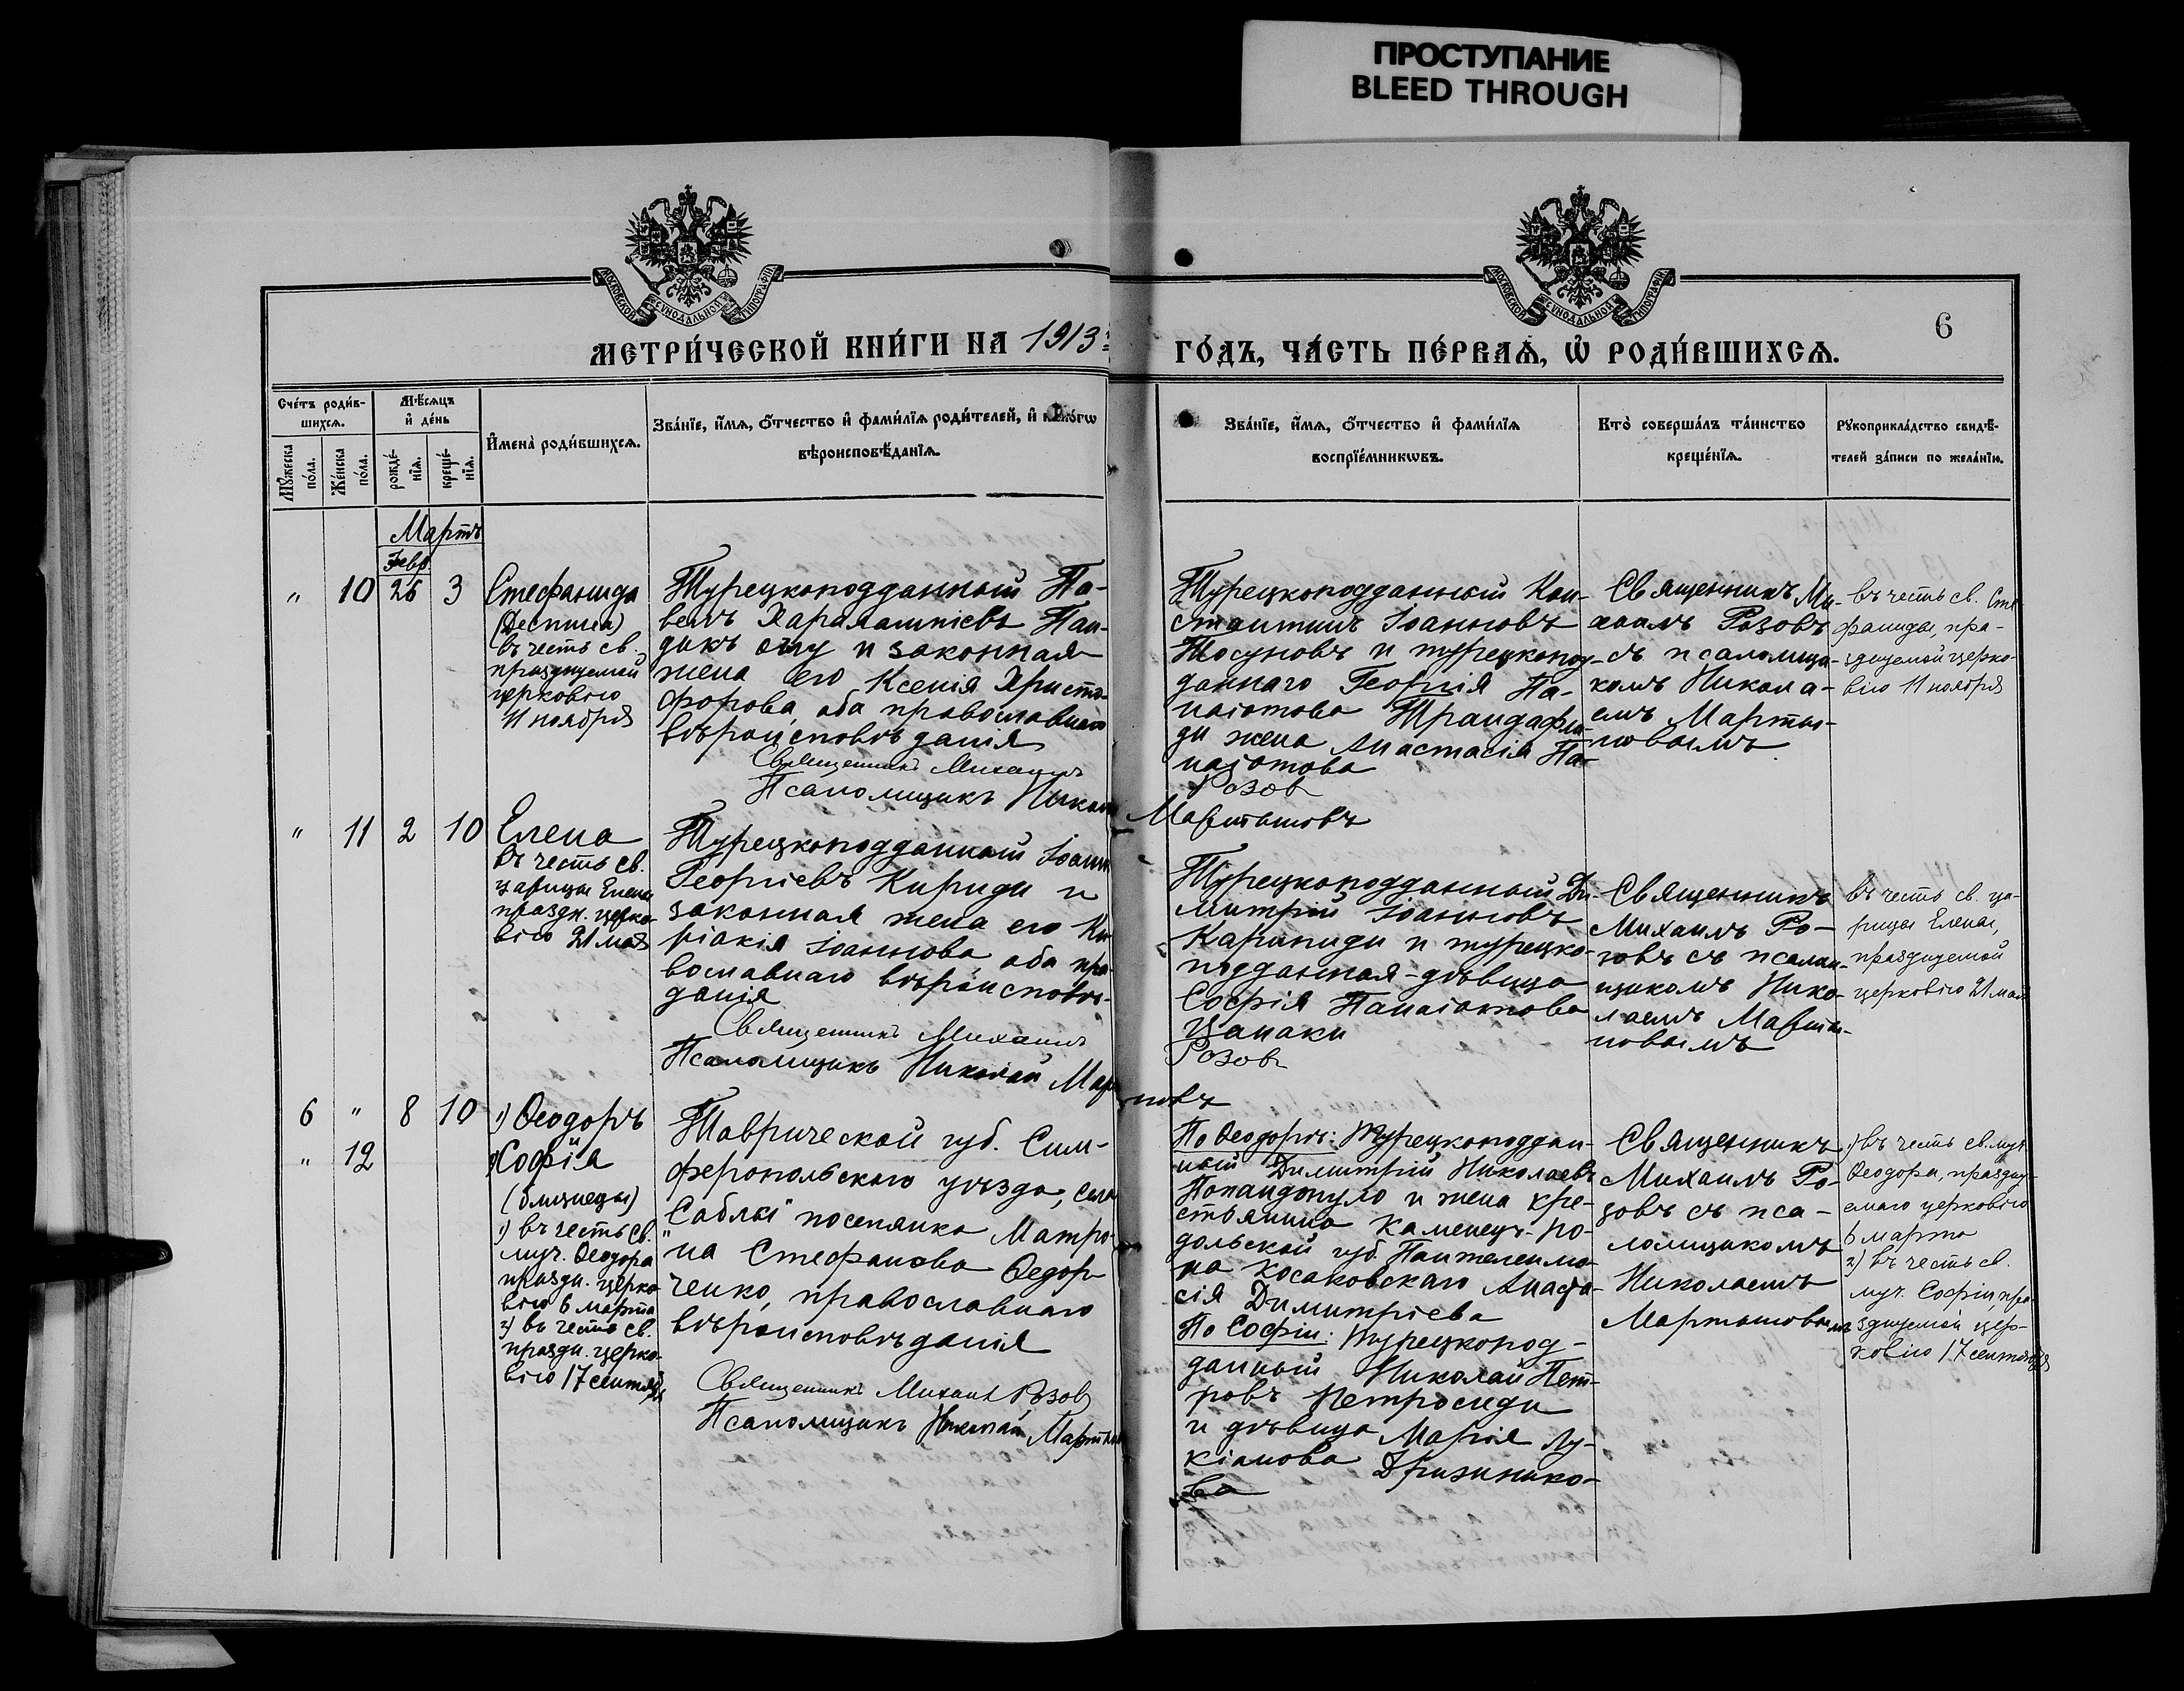 ПРОСТУПАНИЕ
BLEED THROUGH
МОСКОВСКОЙ СѴНОДАЛЬНОЙ ТИПОГРАФІИ
МОСКОВСКОЙ СѴНОДАЛЬНОЙ ТИПОГРАФІИ
6
МЕТРИ́ЧЕСКОЙ КНИ́ГИ НА 1913
ГО́ДЪ, ЧА́СТЬ ПЕ́РВАѦ, Ѽ РОДИ́ВШИХСѦ.
Сче́тъ роди́в-
шихсѧ.
Мꙋ́жеска
по́ла.
Же́нска
по́ла.
Мѣ́сѧцъ
и҆ де́нь
рожде́-
нїѧ.
креще́-
нїѧ.
И҆мена̀ роди́вшихсѧ.
Зва́нїе, и҆́мѧ, ѻ҆́тчество и҆ фами́лїѧ роди́телей, и҆ како́гѡ
вѣроисповѣ́данїѧ.
Зва́нїе, и҆́мѧ, ѻ҆́тчество и҆ фами́лїѧ
воспрїе́мникѡвъ.
Кто̀ соверша́лъ та́инство
креще́нїѧ.
Рꙋкоприкла́дство свидѣ́-
телей за́писи по жела́нїю.
Мартъ
Февр.
" 10 26 3
Стефанида
(Деспина)
въ честь св.
празднуемой
церковію
11 ноября
Турецкоподданный Па-
велъ Харалампіевъ Пан-
дикъ оглу и законная
жена его Ксенія Христо-
форова, оба православнаго
вѣроисповѣданія
Священникъ Михаилъ
Розов
Псаломщикъ Николай
Мартыновъ
Турецкоподданный Кон-
стантинъ Іоанновъ
Тосуновъ и турецкопод-
даннаго Георгія Па-
наіотова Трандафи-
ди жена Анастасія Па-
наіотова
Священникъ Ми-
хаилъ Розовъ
съ псаломщи-
комъ Никола-
емъ Марты-
новымъ
въ честь св. Сте-
фаниды, пра-
зднуемой церко-
вію 11 ноября
" 11 2 10
Елена
въ честь св.
царицы Елены
праздн. церко-
вію 21 мая
Турецкоподданный Іоаннъ
Георгіевъ Кириди и
законная жена его Ки-
ріакія Іоаннова оба пра-
вославнаго вѣроисповѣ-
данія
Священникъ Михаилъ
Розов
Псаломщикъ Николай Мартыновъ
Турецкоподданный Ди-
митрій Іоанновъ
Карипиди и турецко-
подданная-дѣвица
Софія Панаіотова
Цанаки
Священникъ
Михаилъ Ро-
зовъ съ псалом-
щикомъ Нико-
лаемъ Марты-
новымъ
въ честь св. ца-
рицы Елены,
празднуемой
церковію 21 мая
6 " 8 10
" 12
1) Ѳеодоръ
и
2) Софія
(близнецы)
1) въ честь св.
муч. Ѳеодора
праздн. церко-
вію 6 марта
2) въ честь св.
праздн. церко-
вію 17 сентября
Таврической губ. Сим-
феропольскаго уѣзда, села
"Саблы" поселянка Матро-
на Стефанова Ѳедор-
ченко, православнаго
вѣроисповѣданія
Священникъ Михаил Розов
Псаломщикъ Николай Мартынов
По Ѳеодорѣ: Турецкоподдан-
ный Димитрій Николаевъ
Попандопуло и жена кре-
стьянина Каменецъ-По-
дольской губ. Пантелеимо-
на Косаковскаго Анаста-
сія Димитріева
По Софіи: турецкопод-
данный Николай Пет-
ровъ Петросиди
и дѣвица Марія Лу-
кіанова
Священникъ
Михаилъ Ро-
зовъ съ пса-
ломщикомъ
Николаемъ
Мартыновымъ
1) въ честь св. муч.
Ѳеодора, праздну-
емаго церковію
6 марта
2) въ честь св.
муч. Софіи, пра-
зднуемой цер-
ковію 17 сентября